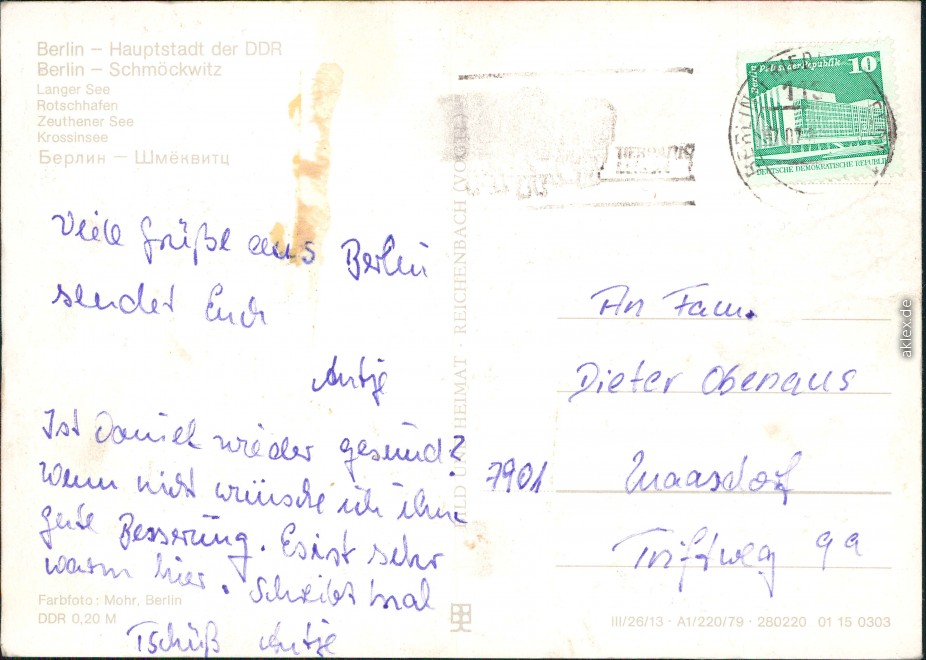 Berlin – Hauptstadt der DDR
Berlin – Schmöckwitz
Langer See
Rotschhafen
Zeuthener See
Krossinsee
Берлин – Шмёквитц
Viele Grüße aus Berlin
sendet Euch
Antje
Ist Daniel wieder gesund?
Wenn nicht wünsche ich ihm
gute Besserung. Es ist sehr
warm hier. Schreibt mal
Tschüß Antje
Farbfoto: Mohr, Berlin
DDR 0,20 M
BILD UND HEIMAT · REICHENBACH (VOGTL)
Berlin Palast der Republik 10
DEUTSCHE DEMOKRATISCHE REPUBLIK
BERLIN
An Fam.
Dieter Obenaus
7901 Maasdorf
Triftweg 9a
III/26/13 · A1/220/79 · 280220 01 15 0303
aklex.de